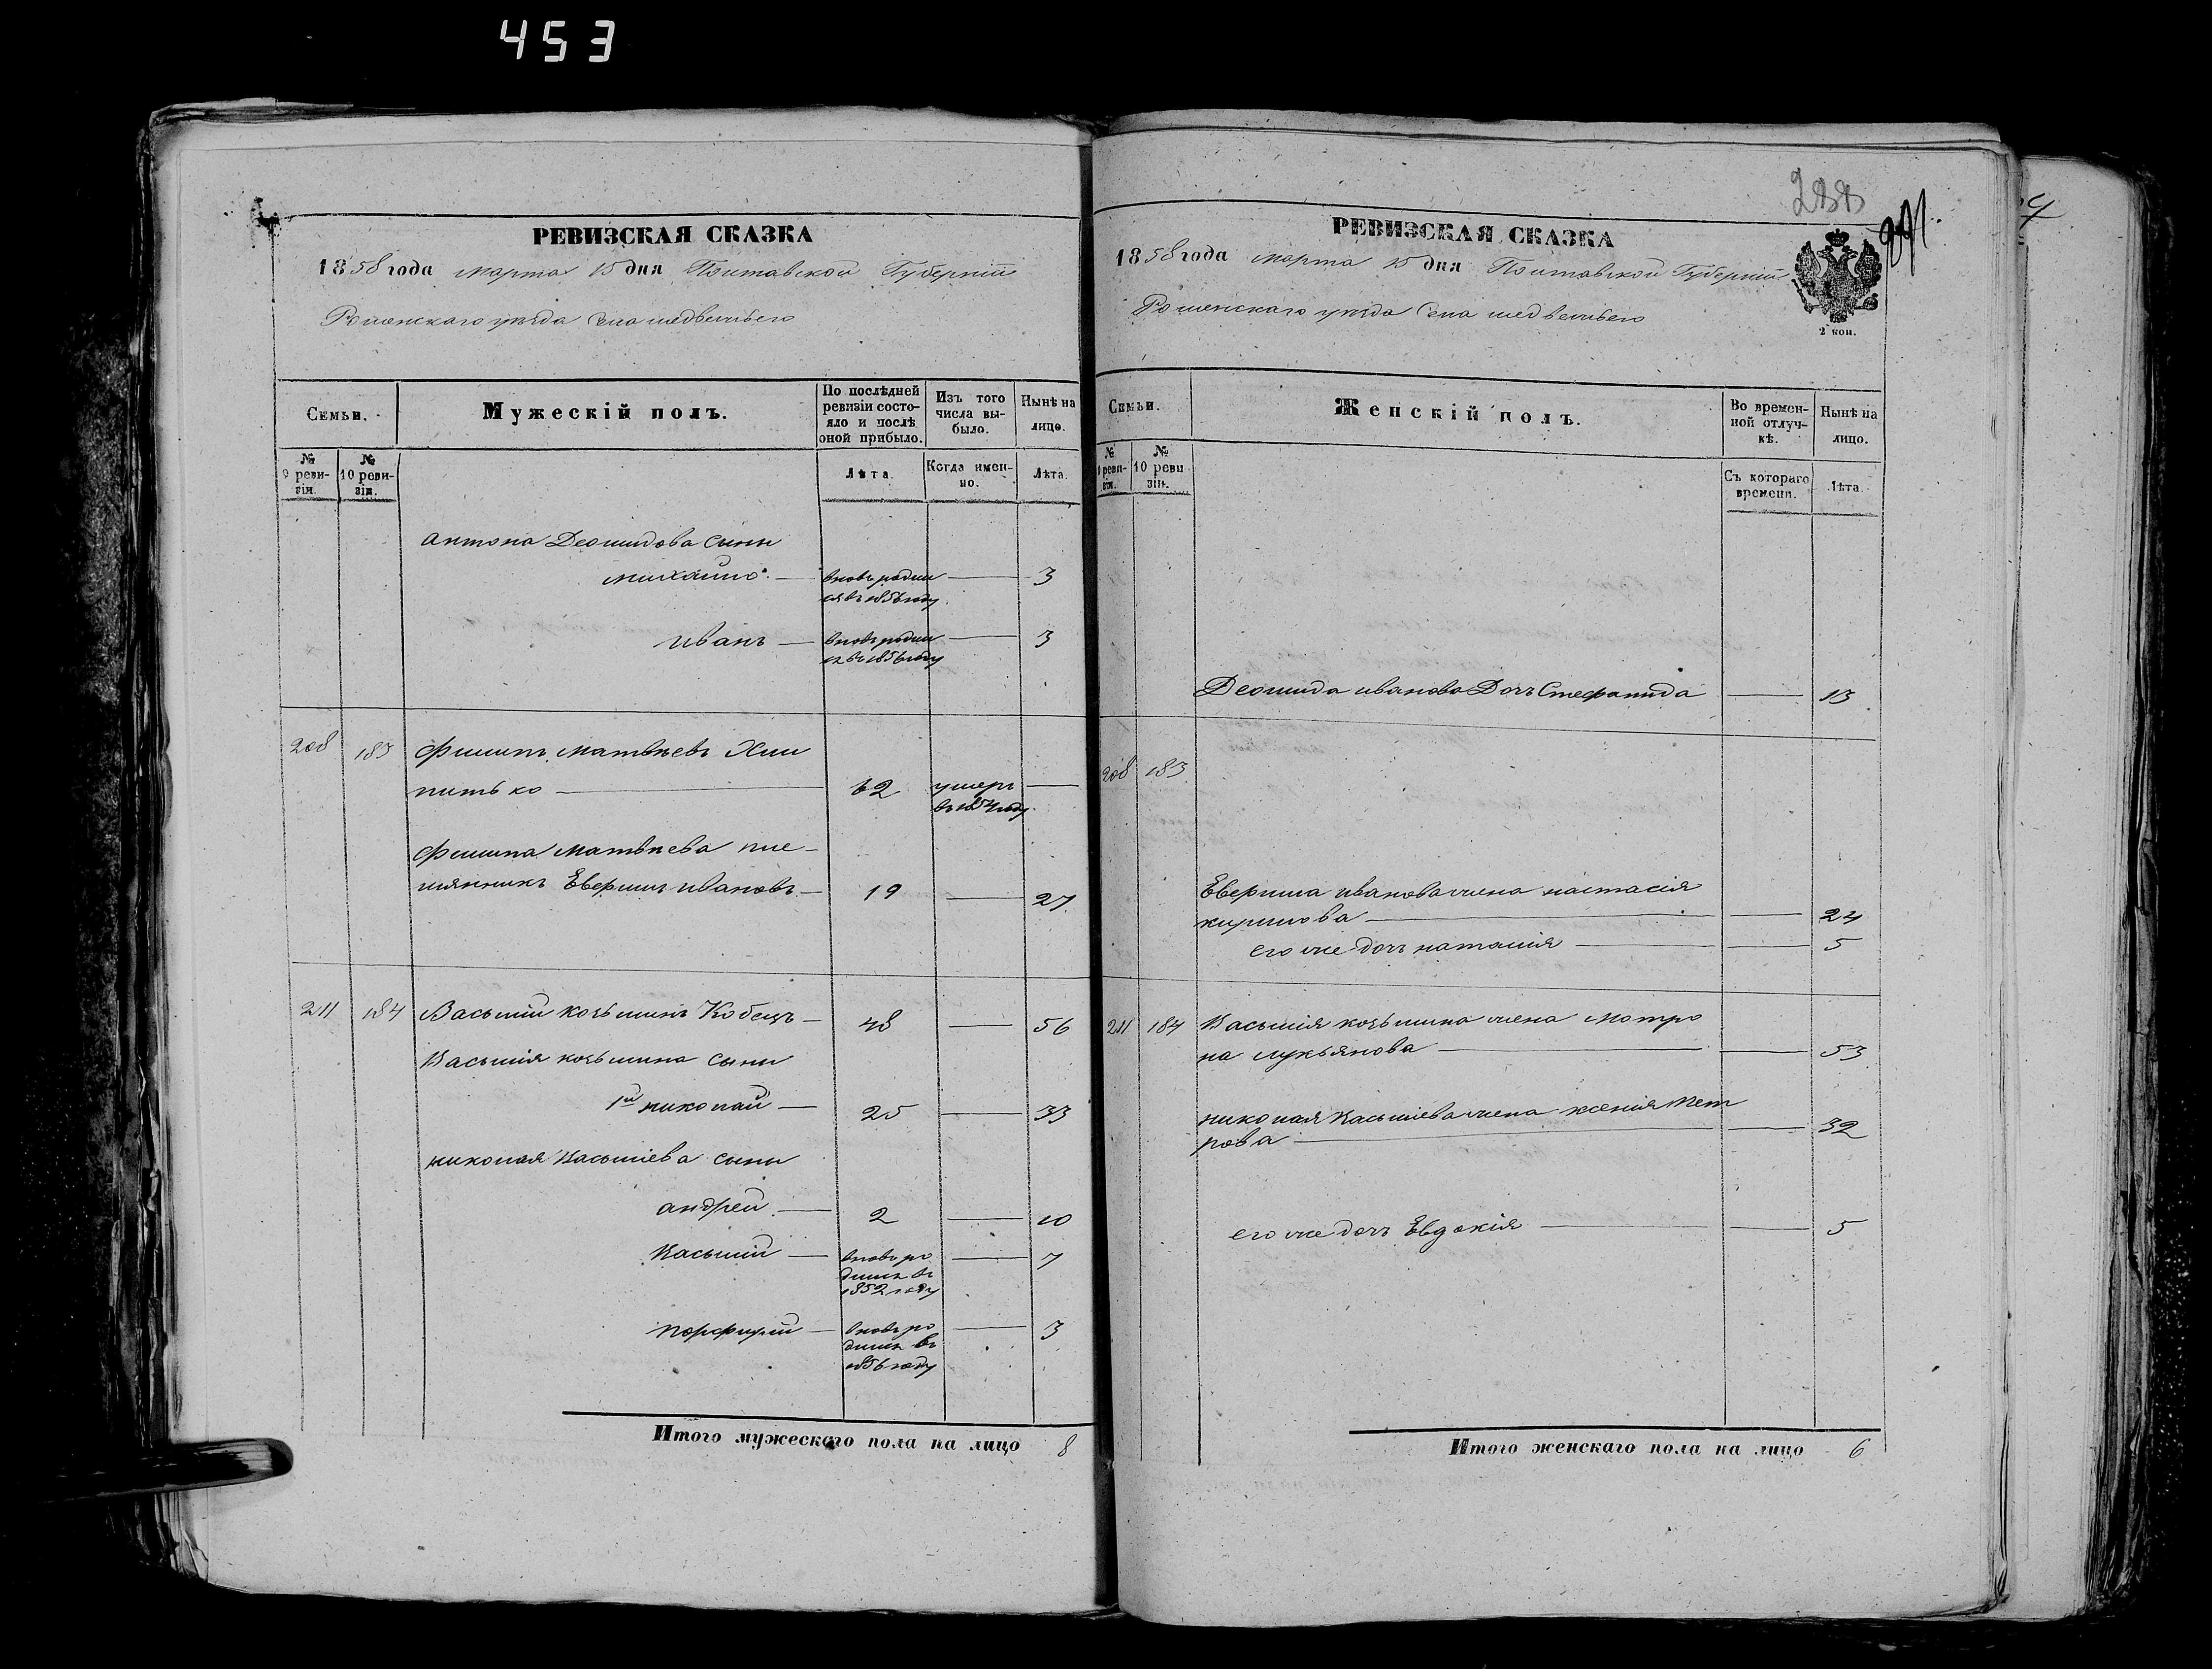 453
РЕВИЗСКАЯ СКАЗКА
1858 года марта 15 дня Полтавской Губерніи
Роменскаго уѣзда Села медвежьего
Семьи.
Мужескій полъ.
По послѣдней ревизіи состояло и послѣ оной прибыло.
Изъ того числа выбыло.
Нынѣ на лицо.
№ 9 ревизіи.
№ 10 ревизіи.
Лѣта.
Когда именно.
Лѣта.
антона Деомидова сыны
михайло — вновь родился въ 1856 году — 3
иванъ — вновь родился въ 1856 году — 3
208 183 Филипъ матвѣевъ Хил
питько — 62 умеръ въ 1854 году —
Филипа матвѣева пле-
мянникъ Еверилъ ивановъ — 19 — 27
211 184 Василий козьминъ Кобецъ — 48 — 56
Василія козьмина сыны
1й николай — 25 — 33
николая Василіева сыны
андрей — 2 — 10
Василій — вновь родился въ 1852 году — 7
порфирій — вновь родился въ 1856 году — 3
Итого мужескаго пола на лицо 8
288
291.
РЕВИЗСКАЯ СКАЗКА
1858 года марта 15 дня Полтавской Губерніи
Роменскаго уѣзда Села медвежьего
2 коп.
Семьи.
Женскій полъ.
Во временной отлучкѣ.
Нынѣ на лицо.
№ 9 ревизіи.
№ 10 ревизіи.
Съ котораго времени.
Лѣта.
Деомида иванова Дочь Стефанида — 13
208 183
Еверила иванова жена настасія
кирилова — 24
его же дочь наталія — 5
211 184 Василія козьмина жена Мотро
на лукьянова — 53
николая Василіева жена ксенія Пет
рова — 32
его же дочь Евдокія — 5
Итого женскаго пола на лицо 6